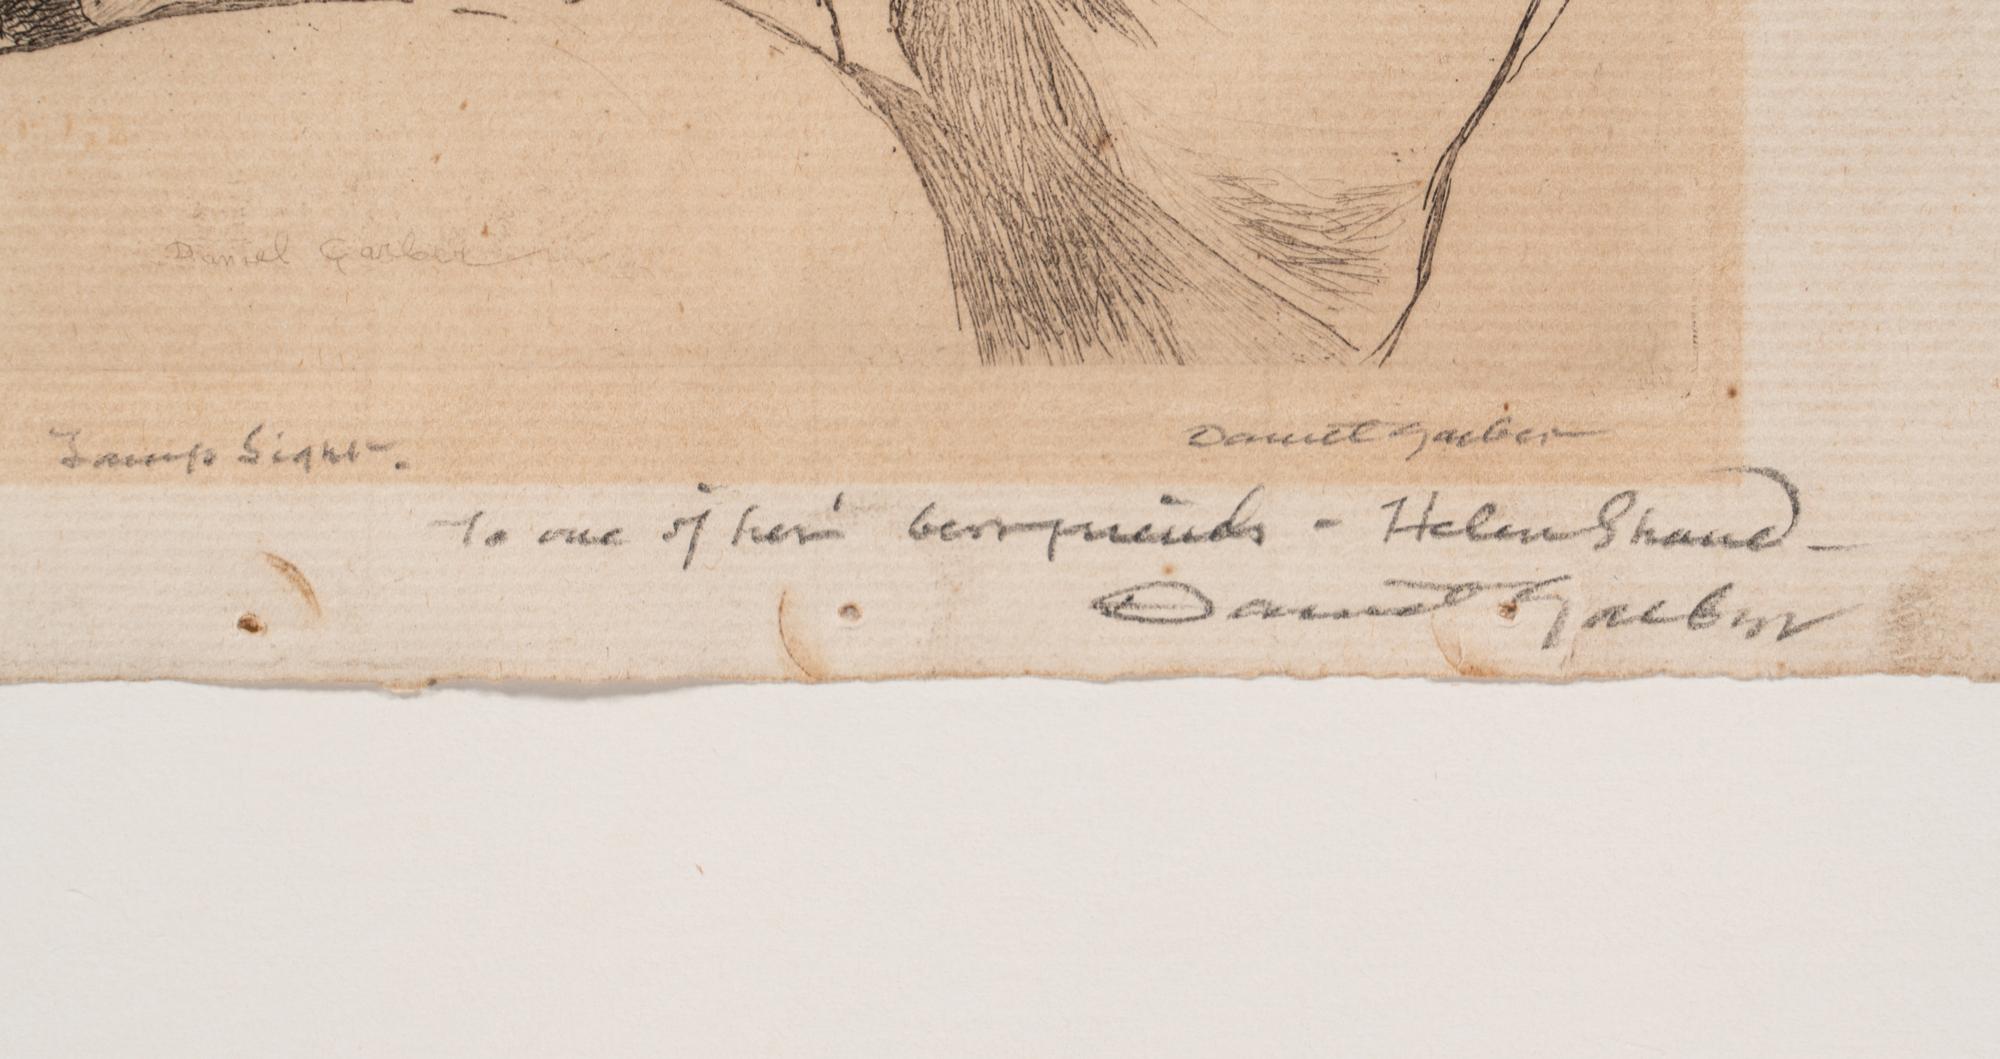 Daniel Garber
Lamp Light.
Daniel Garber
To one of her best friends - Helen Shand -
Daniel Garber